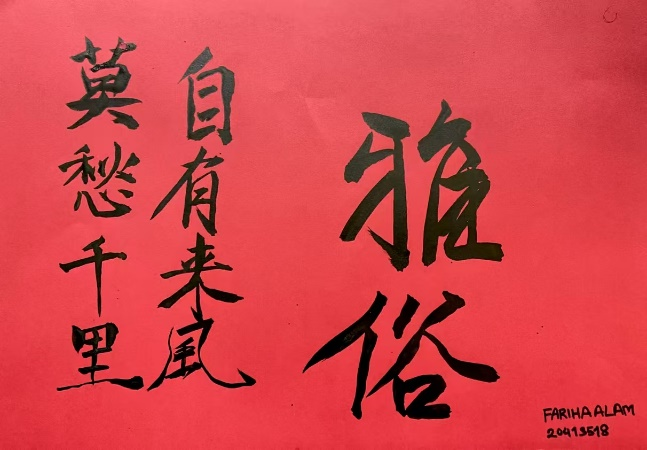 雅俗
自有来風
莫愁千里
FARIHA ALAM
20413518